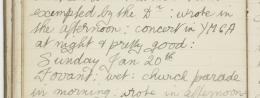 exempted by the Dr: wrote in
the afternoon: concert in YMCA
at night & pretty good:
Sunday Jan 20th
Fovant: wet: church parade
in morning wrote in afternoon